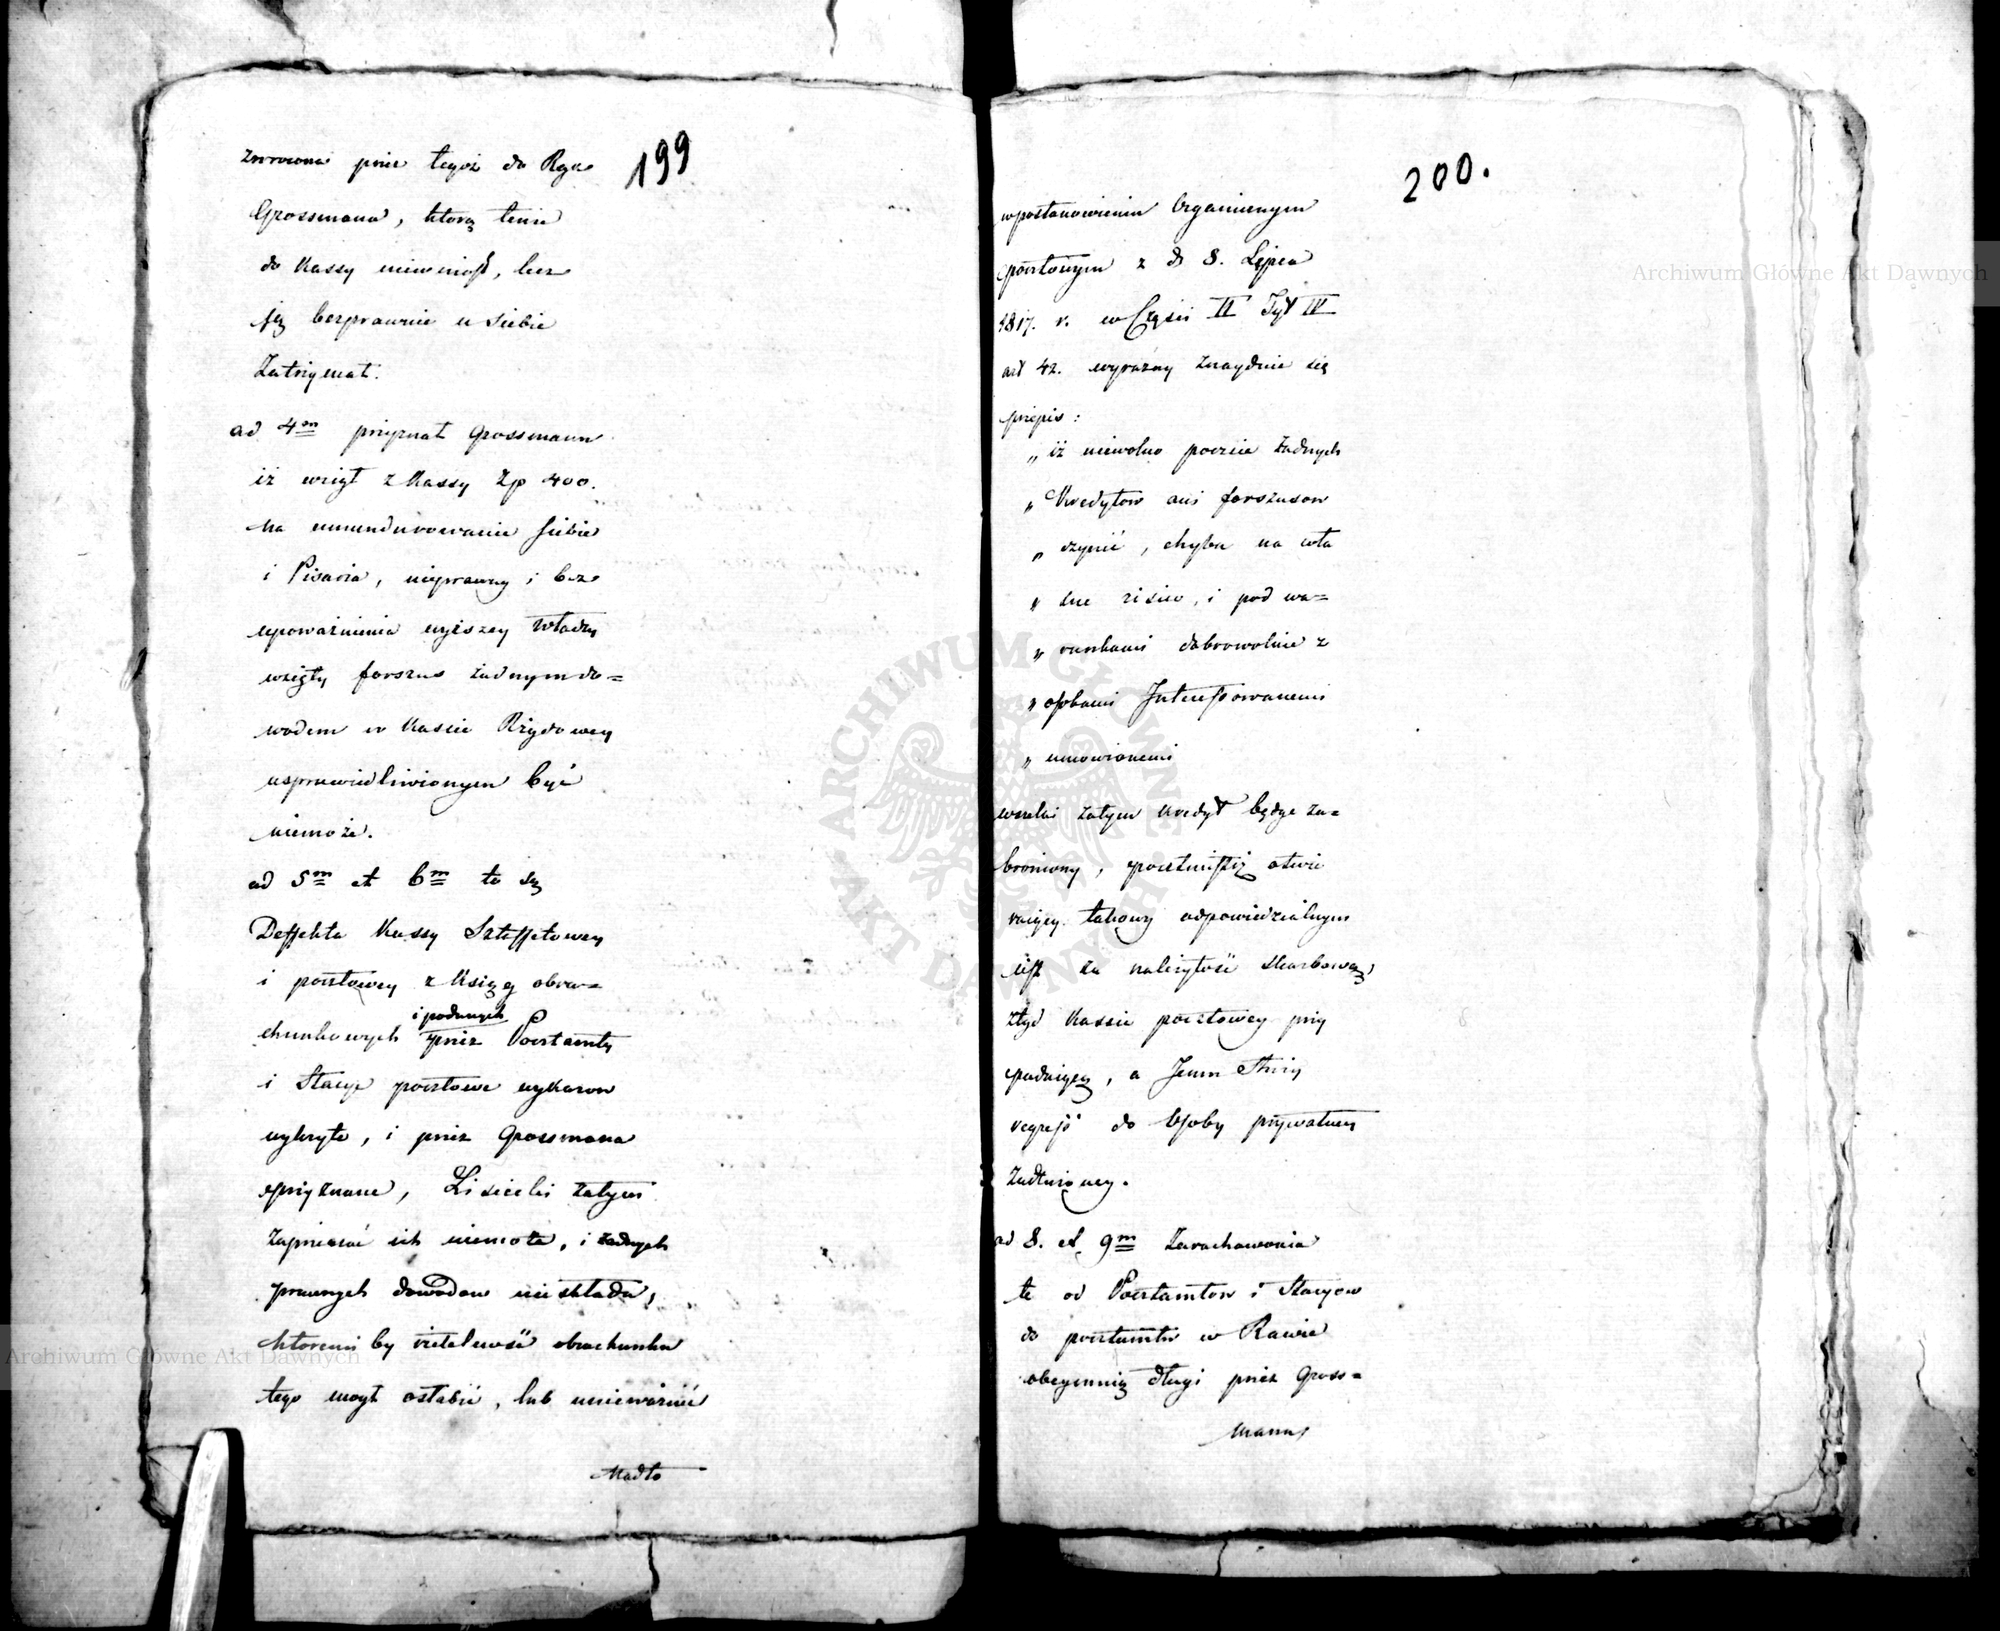 199
zwrocona przez tegoż do Rąk
Grossmana, którą tenże
do Kassy niewniosł, lecz
ją bezprawnie u siebie
Zatrzymał.
ad 4m przyznał Grossmann
iż wziął z Kassy Zp 400.
na umundurowanie siebie
i Pisarza, nieprawny i bez
upoważnienia wyższey Władzy
wzięty forszus żadnym do=
wodem w Kassie Rządowey
usprawiedliwionym być
niemoże.
ad 5m et 6m te są
Deffekta Kassy Sztaffetowey
i pocztowey z Ksiąg obra=
chunkowych i podanych przez Pocztamty
i Stacye pocztowe wykazow
wykryte, i przez Grossmana
przyznane, Lisiecki zatym
Zaprzeczać ich niemoże, i żadnych
prawnych dowodow nieskłada,
ktoremi by rzetelność obrachunku
tego mogł osłabić, lub unieważnić
Nadto
200.
w postanowieniu Organicznym
pocztowym z d 8. Lipca
1817. r. w Części II Tyt IV
art 42. wyraźny znayduie się
przepis:
„ iż niewolno poczcie żadnych
„ Kredytow ani forszusow
„ czynić, chyba na wła
„ sne risico, i pod wa=
„ runkami dobrowolnie z
„ osobami Interessowanemi
„ umowionemi
wszelki zatym kredyt będąc za=
broniony, pocztmistrz otwie
raiący takowy odpowiedzialnym
iest za należytość skarbową,
ztąd Kassie pocztowey przy
padaiącą, a Jemu służy
regress do Osoby prywatney
Zadłużoney.
ad 8. et 9m Zarachowania
te od Pocztamtow i Stacyow
do pocztamtu w Rawie
obeymuią długi przez Gross=
mana